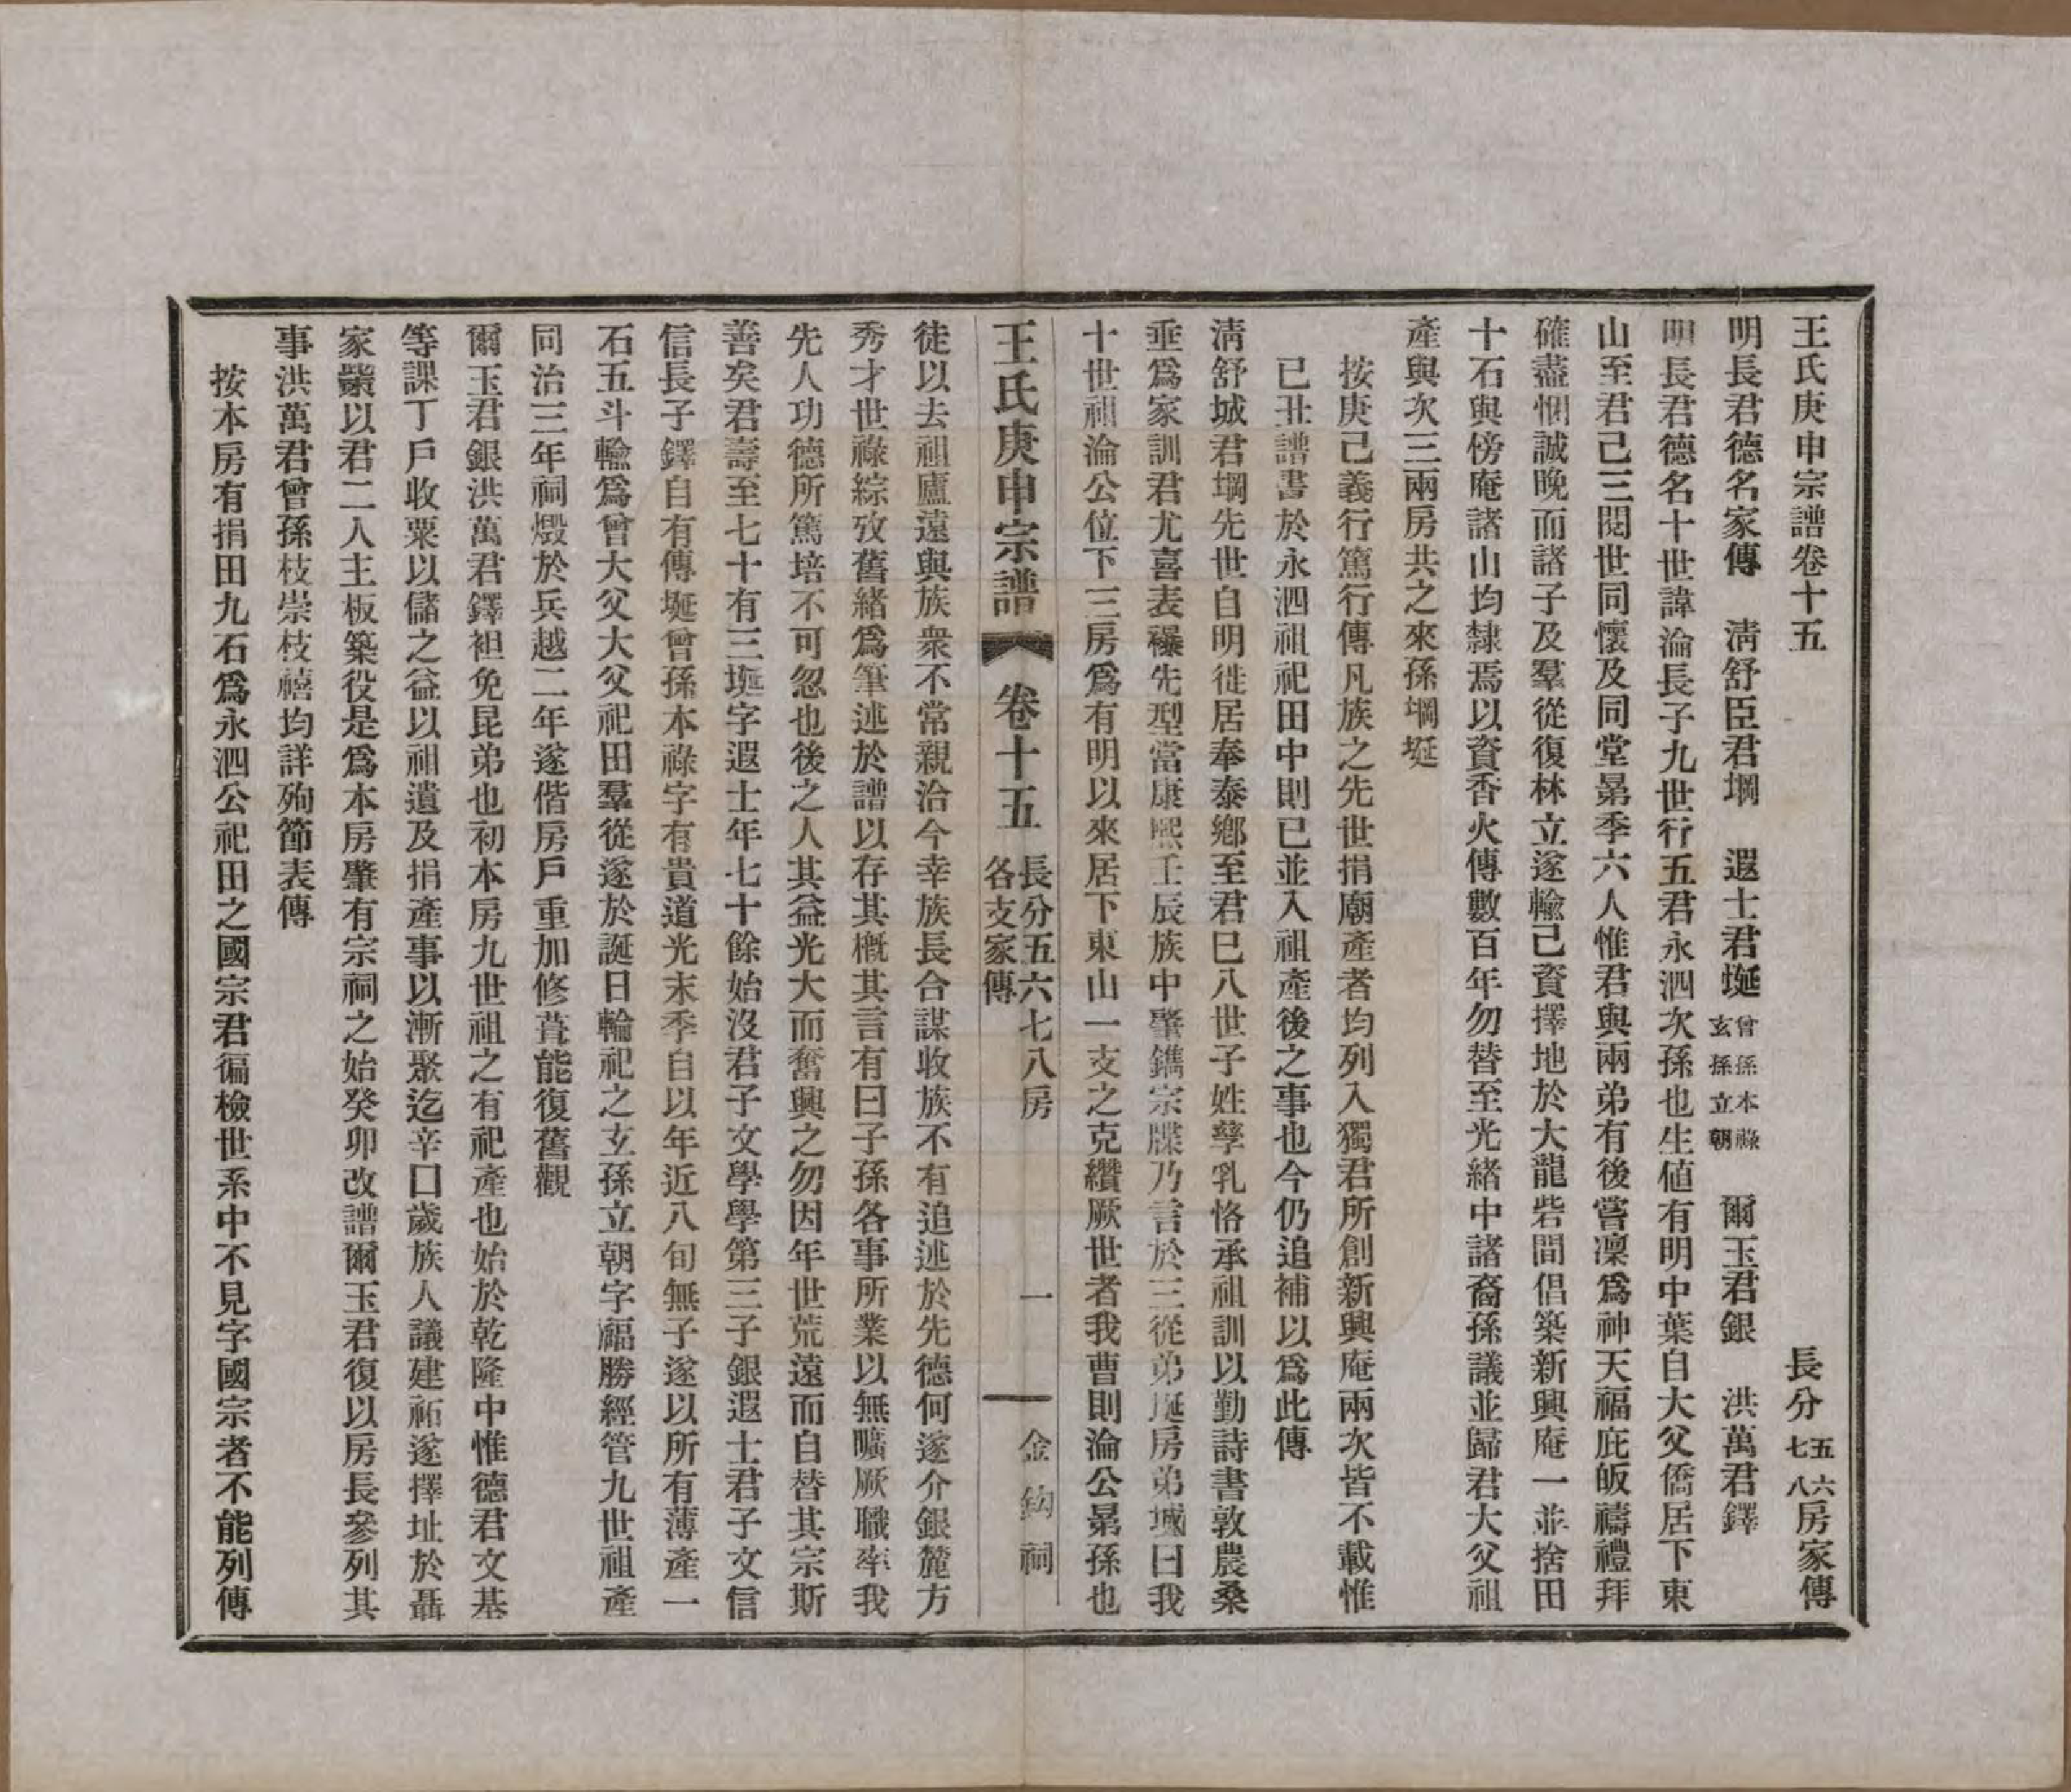 王氏庚申宗譜卷十五　長分五六七八房家傳
明長君德名家傳　淸舒臣君堈　遐士君埏曾孫本祿玄孫立朝　爾玉君銀　洪萬君鐸
明長君德名十世諱淪長子九世行五君永泗次孫也生値有明中葉自大父僑居下東
山至君已三閱世同懷及同堂晜季六人惟君與兩弟有後嘗凜爲神天福庇皈禱禮拜
確盡悃誠晚而諸子及羣從復林立遂輸己資擇地於大龍砦間倡築新興庵一並捨田
十石與傍庵諸山均隸焉以資香火傳數百年勿替至光緖中諸裔孫議並歸君大父祖
產與次三兩房共之來孫堈埏
按庚己義行篤行傳凡族之先世捐廟產者均列入獨君所創新興庵兩次皆不載惟
已丑譜書於永泗祖祀田中則已並入祖產後之事也今仍追補以爲此傳
淸舒城君堈先世自明徙居奉泰鄉至君巳八世子姓孳乳恪承祖訓以勤詩書敦農桑
垂爲家訓君尤喜表襮先型當康熙壬辰族中肇鐫宗牒乃言於三從弟埏房弟城曰我
十世祖淪公位下三房爲有明以來居下東山一支之克纘厥世者我曹則淪公晜孫也
王氏庚申宗譜　卷十五　長分五六七八房各支家傳　一　金鈎祠
徒以去祖廬遠與族衆不常親洽今幸族長合謀收族不有追述於先德何遂介銀麓方
秀才世祿綜攷舊緖爲筆述於譜以存其槪其言有曰子孫各事所業以無曠厥職率我
先人功德所篤培不可忽也後之人其益光大而奮興之勿因年世荒遠而自替其宗斯
善矣君壽至七十有三埏字遐士年七十餘始沒君子文學學第三子銀遐士君子文信
信長子鐸自有傳埏曾孫本祿字有貴道光末季自以年近八旬無子遂以所有薄產一
石五斗輸爲曾大父大父祀田羣從遂於誕日輪祀之玄孫立朝字福勝經管九世祖產
同治三年祠燬於兵越二年遂偕房戶重加修葺能復舊觀
爾玉君銀洪萬君鐸袒免昆弟也初本房九世祖之有祀產也始於乾隆中惟德君文基
等課丁戶收粟以儲之益以祖遺及捐產事以漸聚迄辛口歲族人議建祏遂擇址於聶
家𡾰以君二人主板築役是爲本房肇有宗祠之始癸卯改譜爾玉君復以房長參列其
事洪萬君曾孫枝崇枝禧均詳殉節表傳
按本房有捐田九石爲永泗公祀田之國宗君徧檢世系中不見字國宗者不能列傳